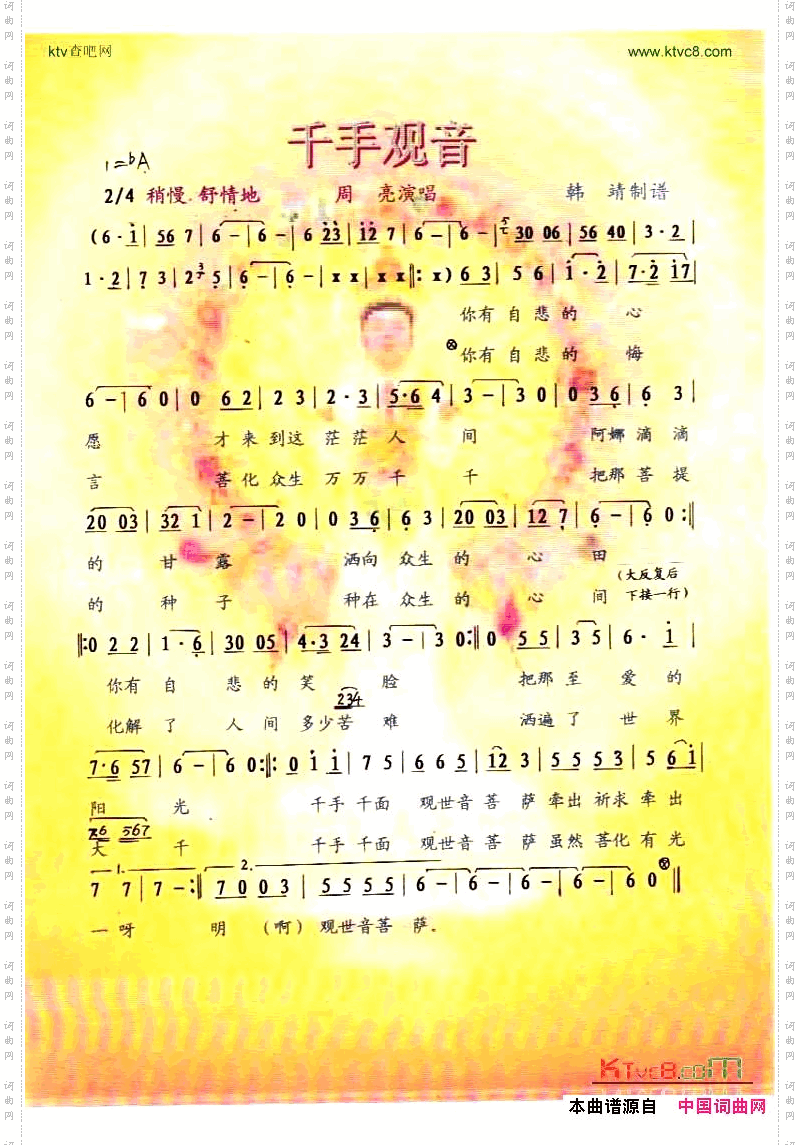 ktv查吧网
www.ktvc8.com
千手观音
1=bA
2/4 稍慢 舒情地 周 亮演唱 韩 靖制谱
(6·i | 56 7 | 6 – | 6 – | 6 23 | 12 7 | 6 – | 6 – | 30 06 | 56 40 | 3·2 |
1·2 | 7 3 | 2 5 | 6 – | 6 – | x x | x x ‖: x) 63 | 5 6 | i·2 | 7·2 i7 |
你有 自 悲 的 心
你有 自 悲 的 悔
6 – | 6 0 | 0 62 | 2 3 | 2·3 | 5·6 4 | 3 – | 3 0 | 0 36 | 6 3 |
愿 才来 到这 茫茫 人 间 阿娜 滴 滴
言 菩化 众生 万万 千 千 把那 菩 提
20 03 | 32 1 | 2 – | 2 0 | 0 36 | 6 3 | 20 03 | 12 7 | 6 – | 6 0 :‖
的 甘 露 洒向 众生 的 心 田
(大反复后
的 种 子 种在 众生 的 心 间
下接一行)
‖: 0 22 | 1·6 | 30 05 | 4·3 24 | 3 – | 3 0 :‖: 0 55 | 35 | 6· i |
你有 自 悲 的 笑 脸 把那 至 爱 的
234
化解 了 人 间 多少 苦 难 洒遍 了 世 界
7·6 57 | 6 – | 6 0 :‖: 0 i i | 7 5 | 6 6 5 | i2 3 | 5 5 5 3 | 5 6i |
阳 光 千手 千面 观世音 菩 萨 牵出 祈求 牵 出
76 567
大 千 千手 千面 观世音 菩 萨 虽然 菩化 有 光
1. 2.
7 7 | 7 – :‖ 70 03 | 5 5 5 5 | 6 – | 6 – | 6 – | 6 – | 6 0 ‖
一 呀 明 (啊) 观世音菩 萨。
KTvc8.com
本曲谱源自 中国词曲网
词曲网